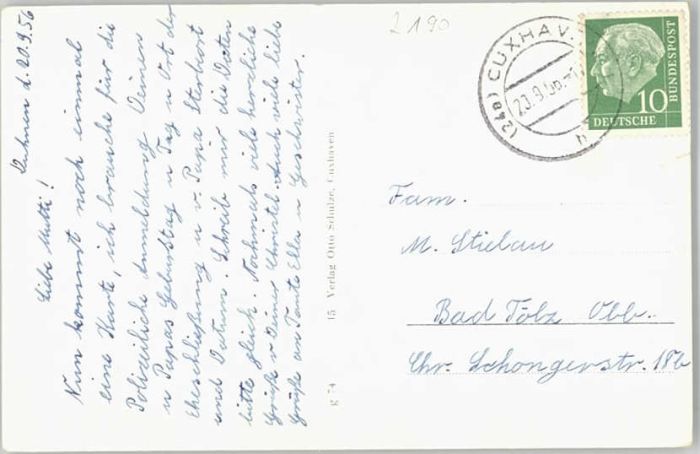 Duhnen d. 20.9.56
Liebe Mutti!
Nun kommt noch einmal
eine Karte, ich brauche für die
Polizeiliche Anmeldung Deinen
u Papas Geburtstag u Tag u Ort der
Eheschließung u v. Papa Sterbeort
und Datum. Schreibe mir die Daten
bitte gleich. Nochmals viel herzliche
Grüße v Deiner Christel. Auch viele liebe
Grüße an Tante Ella u Geschwister.
g 74 15 Verlag Otto Schulze, Cuxhaven
2190
(24a) CUXHAV
20.9.56
h
DEUTSCHE
BUNDESPOST
10
Fam.
M. Stielau
Bad Tölz Obb.
Chr. Schongerstr. 18b